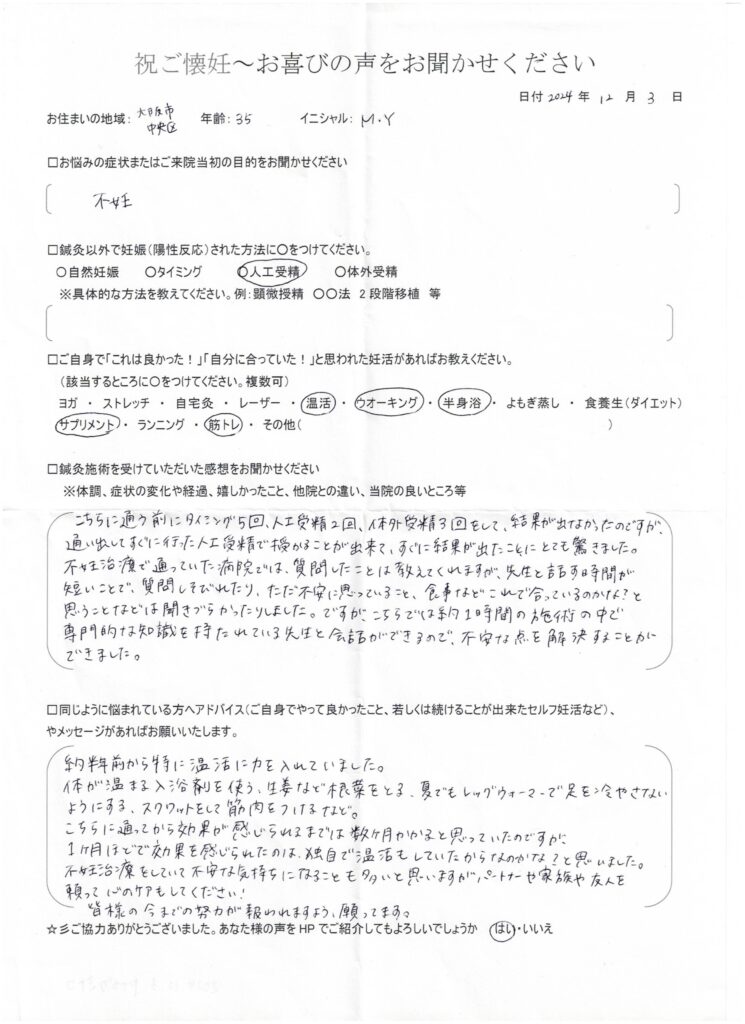 祝ご懐妊～お喜びの声をお聞かせください
日付 2024 年 12 月 3 日
お住まいの地域: 大阪市中央区 年齢: 35 イニシャル: M・Y
□お悩みの症状またはご来院当初の目的をお聞かせください
不妊
□鍼灸以外で妊娠(陽性反応)された方法に〇をつけてください。
〇自然妊娠 〇タイミング 〇人工受精 〇体外受精
※具体的な方法を教えてください。例: 顕微授精 〇〇法 2段階移植 等
□ご自身で「これは良かった!」「自分に合っていた!」と思われた妊活があればお教えください。
(該当するところに〇をつけてください。複数可)
ヨガ ・ ストレッチ ・ 自宅灸 ・ レーザー ・ 温活 ・ ウオーキング ・ 半身浴 ・ よもぎ蒸し ・ 食養生(ダイエット)
サプリメント ・ ランニング ・ 筋トレ ・ その他( )
□鍼灸施術を受けていただいた感想をお聞かせください
※体調、症状の変化や経過、嬉しかったこと、他院との違い、当院の良いところ等
こちらに通う前にタイミング5回、人工受精2回、体外受精3回をして、結果が出なかったのですが、
通い出してすぐに行った人工受精で授かることが出来て、すぐに結果が出たことにとても驚きました。
不妊治療で通っていた病院では、質問したことは教えてくれますが、先生と話す時間が
短いことで、質問しそびれたり、ただ不安に思っていること、食事などこれで合っているのかな?と
思うことなどは聞きづらかったりしました。ですが、こちらでは約1時間の施術の中で
専門的な知識を持たれている先生と会話ができるので、不安な点を解決することが
できました。
□同じように悩まれている方へアドバイス(ご自身でやって良かったこと、若しくは続けることが出来たセルフ妊活など)、
やメッセージがあればお願いいたします。
約半年前から特に温活に力を入れていました。
体が温まる入浴剤を使う、生姜など根菜をとる、夏でもレッグウォーマーで足を冷やさない
ようにする、スクワットをして筋肉をつけるなど。
こちらに通ってから効果が感じられるまでは数ヶ月かかると思っていたのですが、
1ヶ月ほどで効果を感じられたのは、独自で温活もしていたからなのかな?と思いました。
不妊治療をしていて不安な気持ちになることも多いと思いますが、パートナーや家族や友人を
頼って心のケアもしてください!
皆様の今までの努力が報われますよう、願ってます。
☆彡ご協力ありがとうございました。あなた様の声をHPでご紹介してもよろしいでしょうか はい・いいえ